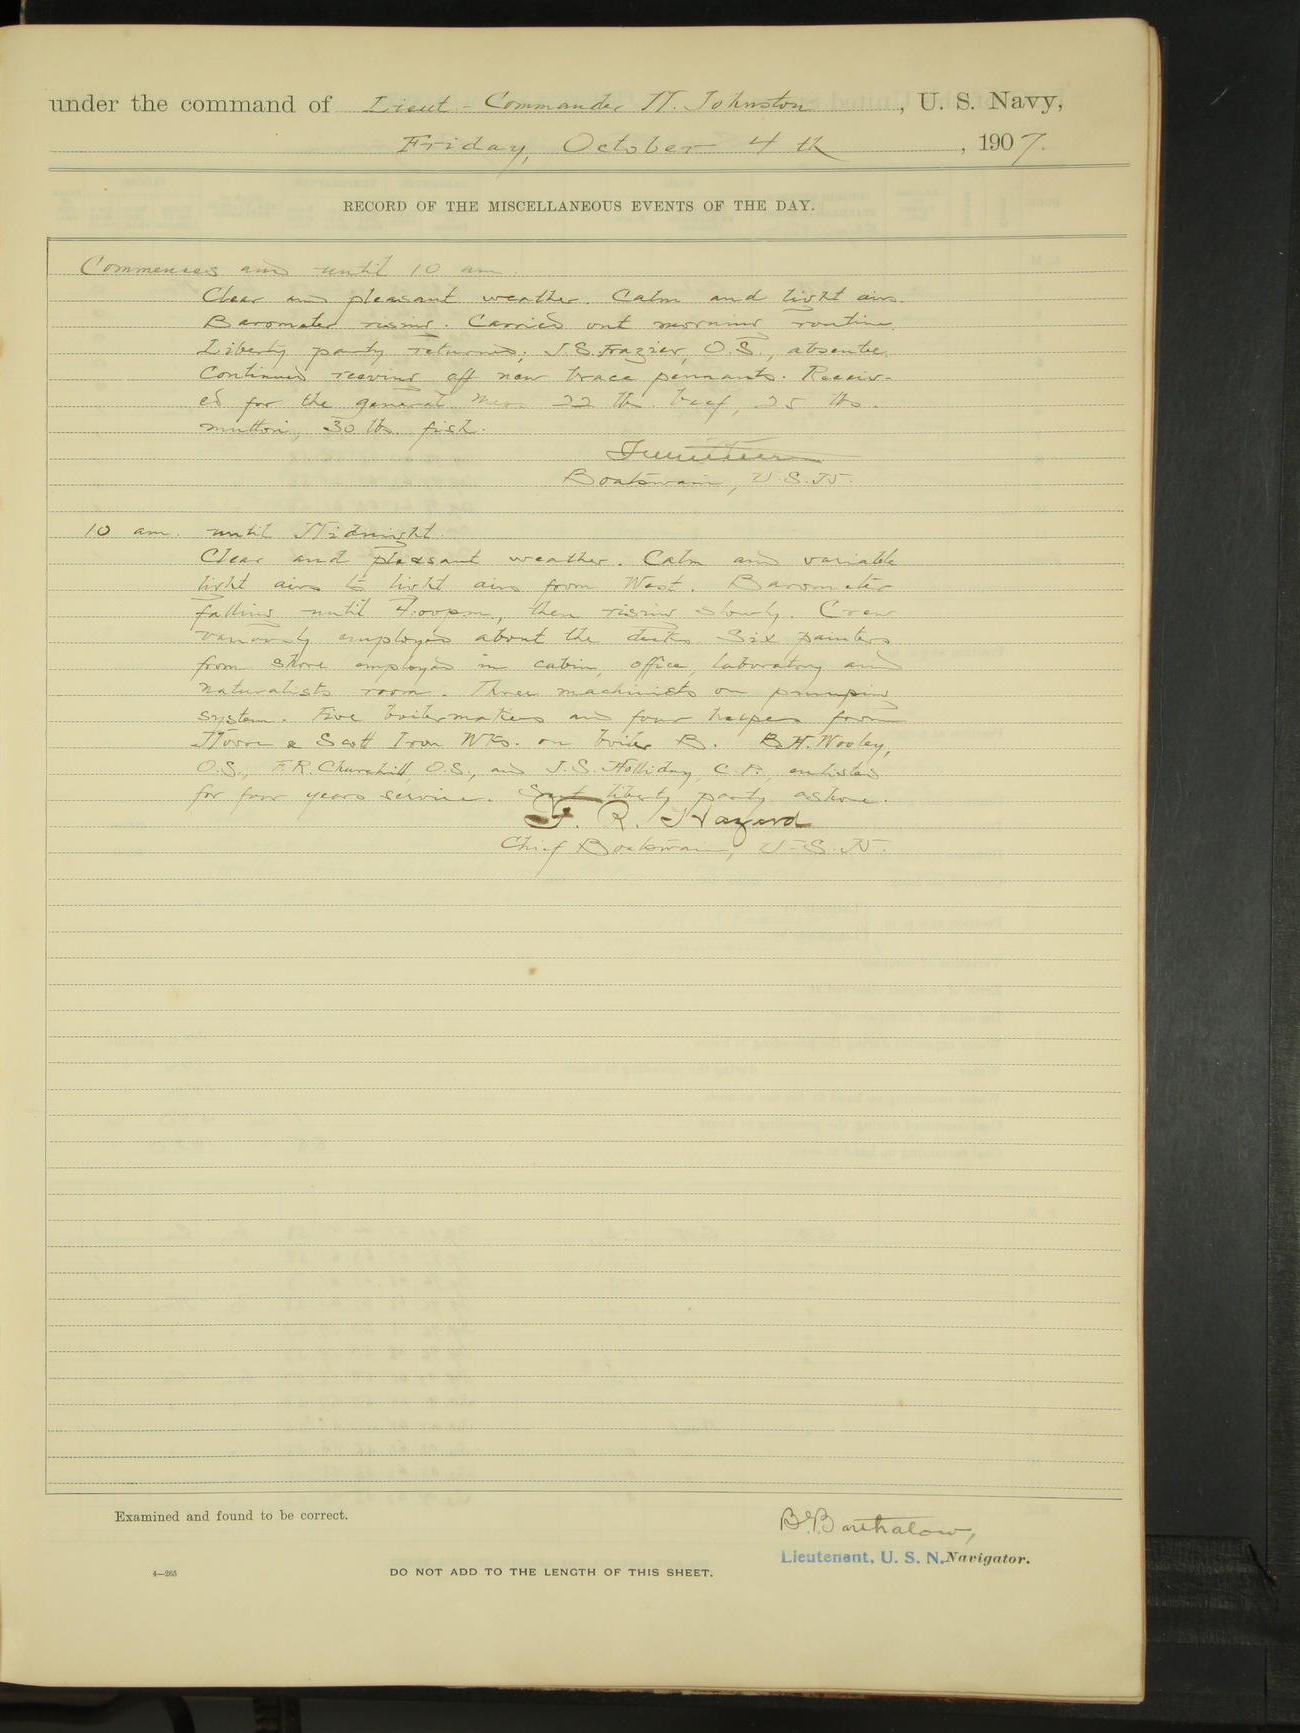 under the command of Lieut-Commander M. Johnston, U. S. Navy,
Friday, October 4th, 1907.
RECORD OF THE MISCELLANEOUS EVENTS OF THE DAY.
Commences and until 10 am.
Clear and pleasant weather. Calm and light airs.
Barometer rising. Carried out morning routine.
Liberty party returned; J.S. Frazier, O.S., absentee.
Continued reeving off new brace pennants. Receiv-
ed for the general mess 22 lbs. beef, 25 lbs.
mutton, 30 lbs. fish.
Boatswain, U.S.N.
10 am. until Midnight.
Clear and pleasant weather. Calm and variable
light airs to light airs from West. Barometer
falling until 4:00 pm, then rising slowly. Crew
variously employed about the decks. Six painters
from shore employed in cabin, office, laboratory and
naturalists room. Three machinists on pumping
system. Five boilermakers and four helpers from
Moore & Scott Iron Wks. on boiler B. B.H. Wooley,
O.S., F.R. Churchill, O.S., and J.S. Holliday, C.P., enlisted
for four years service. Sent liberty party ashore.
F. R. Hazard
Chief Boatswain, U.S.N.
Examined and found to be correct.
Barthalow,
Lieutenant, U. S. N. Navigator.
4—265
DO NOT ADD TO THE LENGTH OF THIS SHEET.